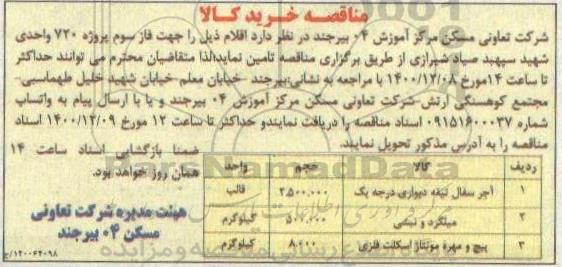 مناقصه خرید کالا
شرکت تعاونی مسکن مرکز آموزش ۰۴ بیرجند در نظر دارد اقلام ذیل را جهت فاز سوم پروژه ۷۲۰ واحدی
شهید سپهبد صیاد شیرازی از طریق برگزاری مناقصه تامین نماید.لذا متقاضیان محترم می توانند حداکثر
تا ساعت ۱۴مورخ ۱۴۰۰/۱۲/۰۸ با مراجعه به نشانی:بیرجند -خیابان معلم-خیابان شهید خلیل طهماسبی-
مجتمع کوهسنگی ارتش-شرکت تعاونی مسکن مرکز آموزش ۰۴ بیرجند و یا با ارسال پیام به واتساپ
شماره ۰۹۱۵۱۶۰۰۰۳۷ اسناد مناقصه را دریافت نمایندو حداکثر تا ساعت ۱۲ مورخ ۱۴۰۰/۱۲/۰۹ اسناد
مناقصه را به آدرس مذکور تحویل نمایند.
ضمنا بازگشایی اسناد ساعت ۱۴
همان روز خواهد بود.
هیئت مدیره شرکت تعاونی
مسکن ۰۴ بیرجند
ردیف کالا حجم واحد
۱ آجر سفال تیغه دیواری درجه یک ۲,۵۰۰,۰۰۰ قالب
۲ میلگرد و نبشی ۵۰۰,۰۰۰ کیلوگرم
۳ پیچ و مهره مونتاژ اسکلت فلزی ۸,۰۰۰ کیلوگرم
۱۲۰۰۶۲۰۹۸/م
ParsNamadData